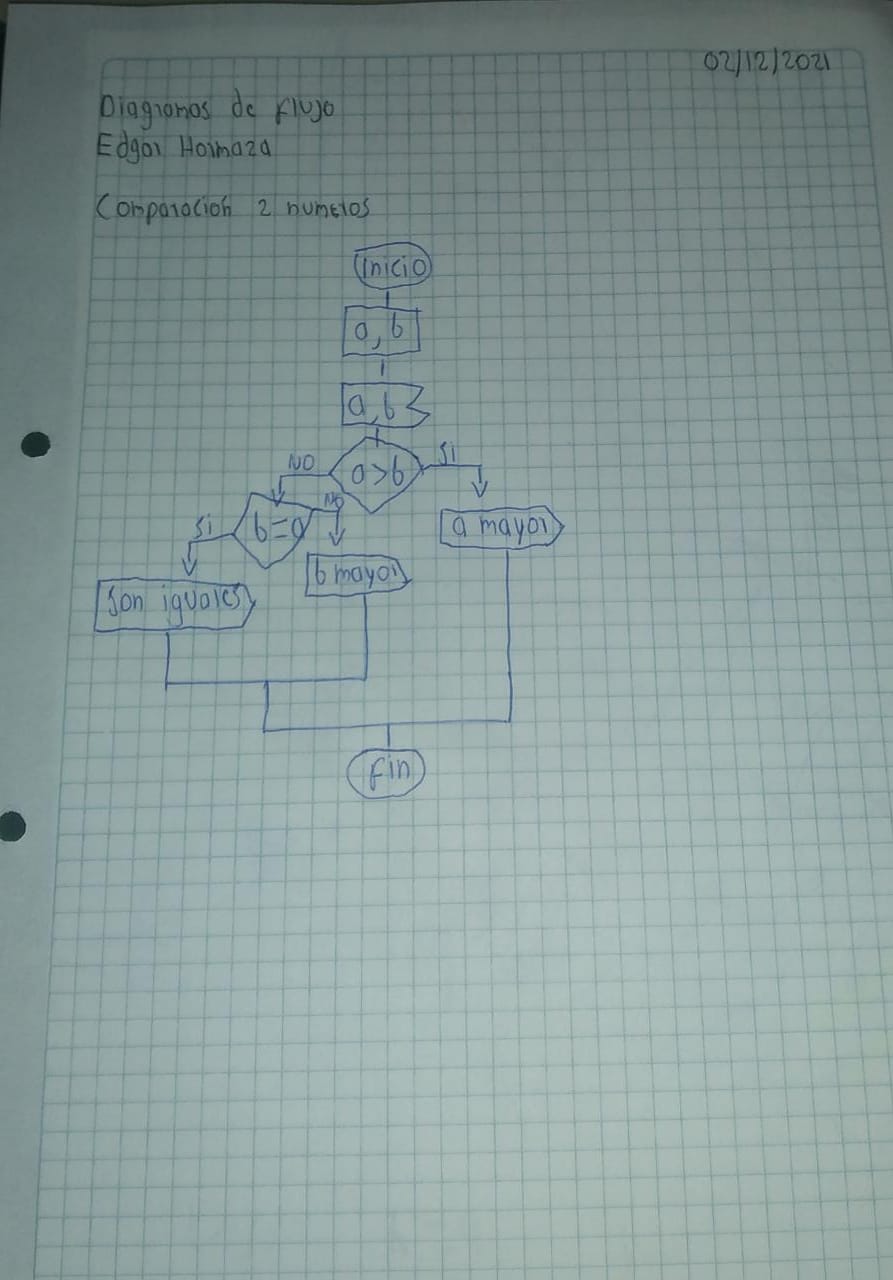 02/12/2021
Diagramas de flujo
Edgar Hormaza
Comparacion 2 numeros
Inicio
a, b
a, b
a > b
NO
Si
b = a
Si
NO
a mayor
b mayor
Son iguales
fin